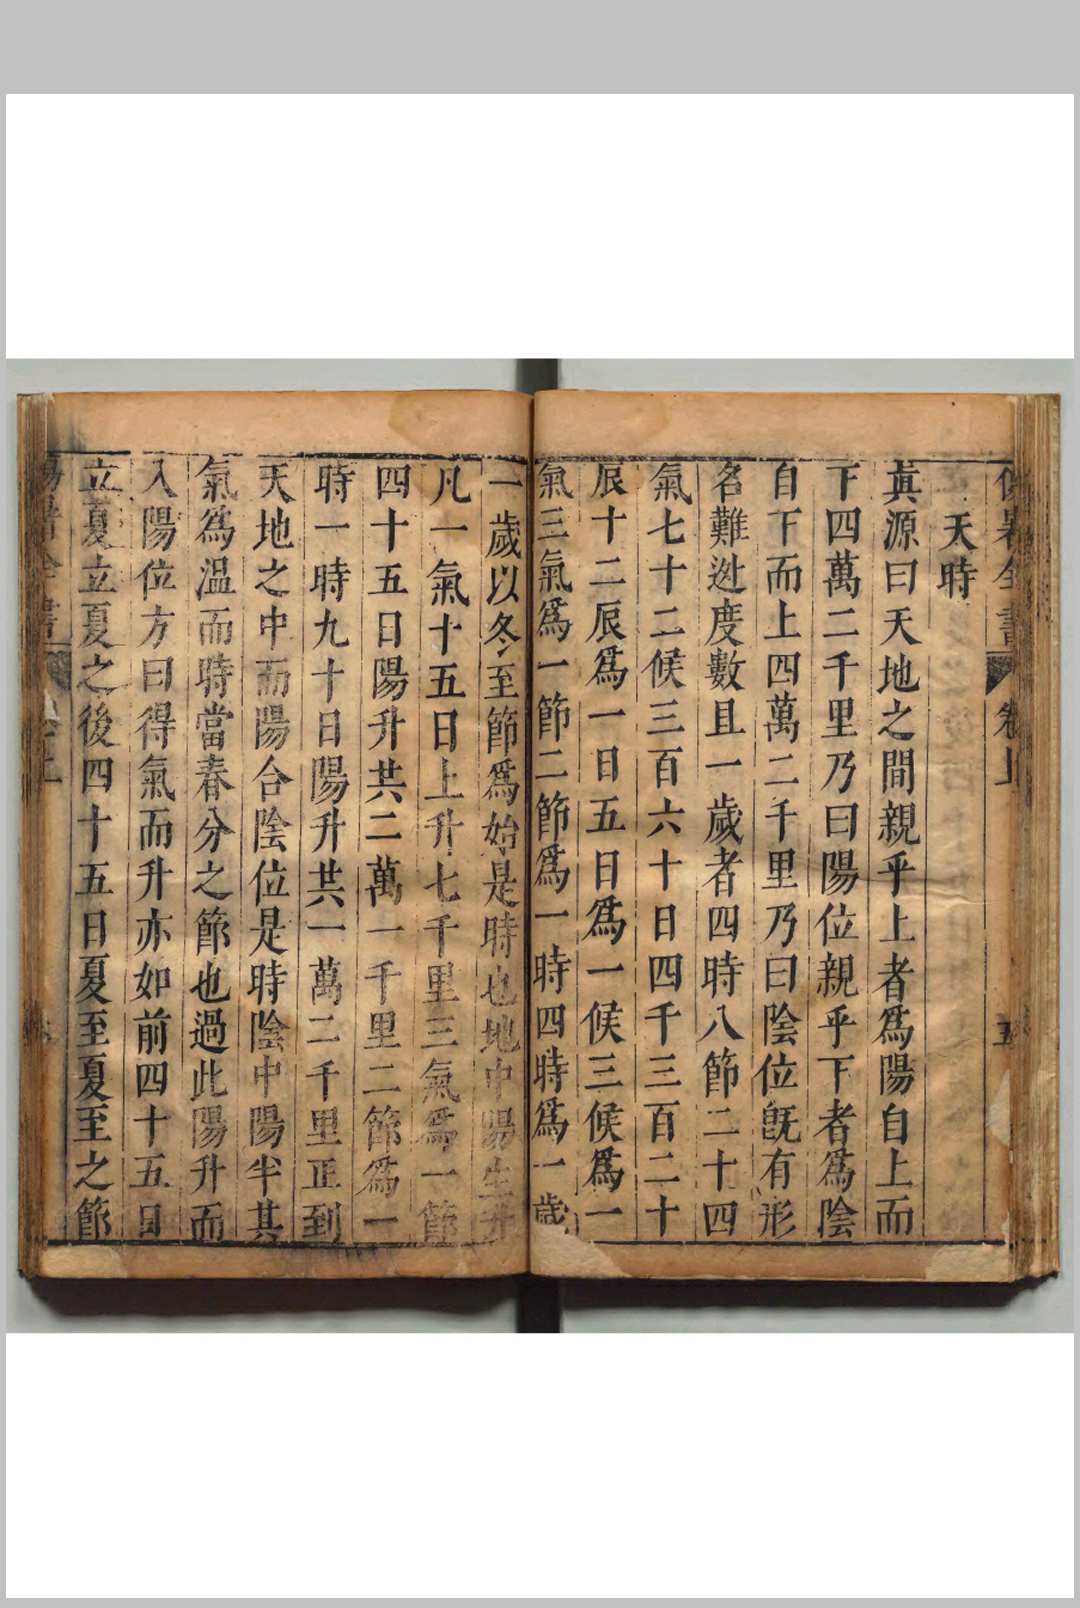 全書 卷上 五
天時
眞源曰天地之間親乎上者爲陽自上而
下四萬二千里乃曰陽位親乎下者爲陰
自下而上四萬二千里乃曰陰位旣有形
名難逃度數且一歲者四時八節二十四
氣七十二候三百六十日四千三百二十
辰十二辰爲一日五日爲一候三候爲一
氣三氣爲一節二節爲一時四時爲一歲
一歲以冬至節爲始是時也地中陽生
凡一氣十五日上升七千里三氣爲一節
四十五日陽升共二萬一千里二節爲一
時一時九十日陽升共一萬二千里正到
天地之中而陽合陰位是時陰中陽半其
氣爲温而時當春分之節也過此陽升而
入陽位方曰得氣而升亦如前四十五日
立夏立夏之後四十五日夏至夏至之節
全書